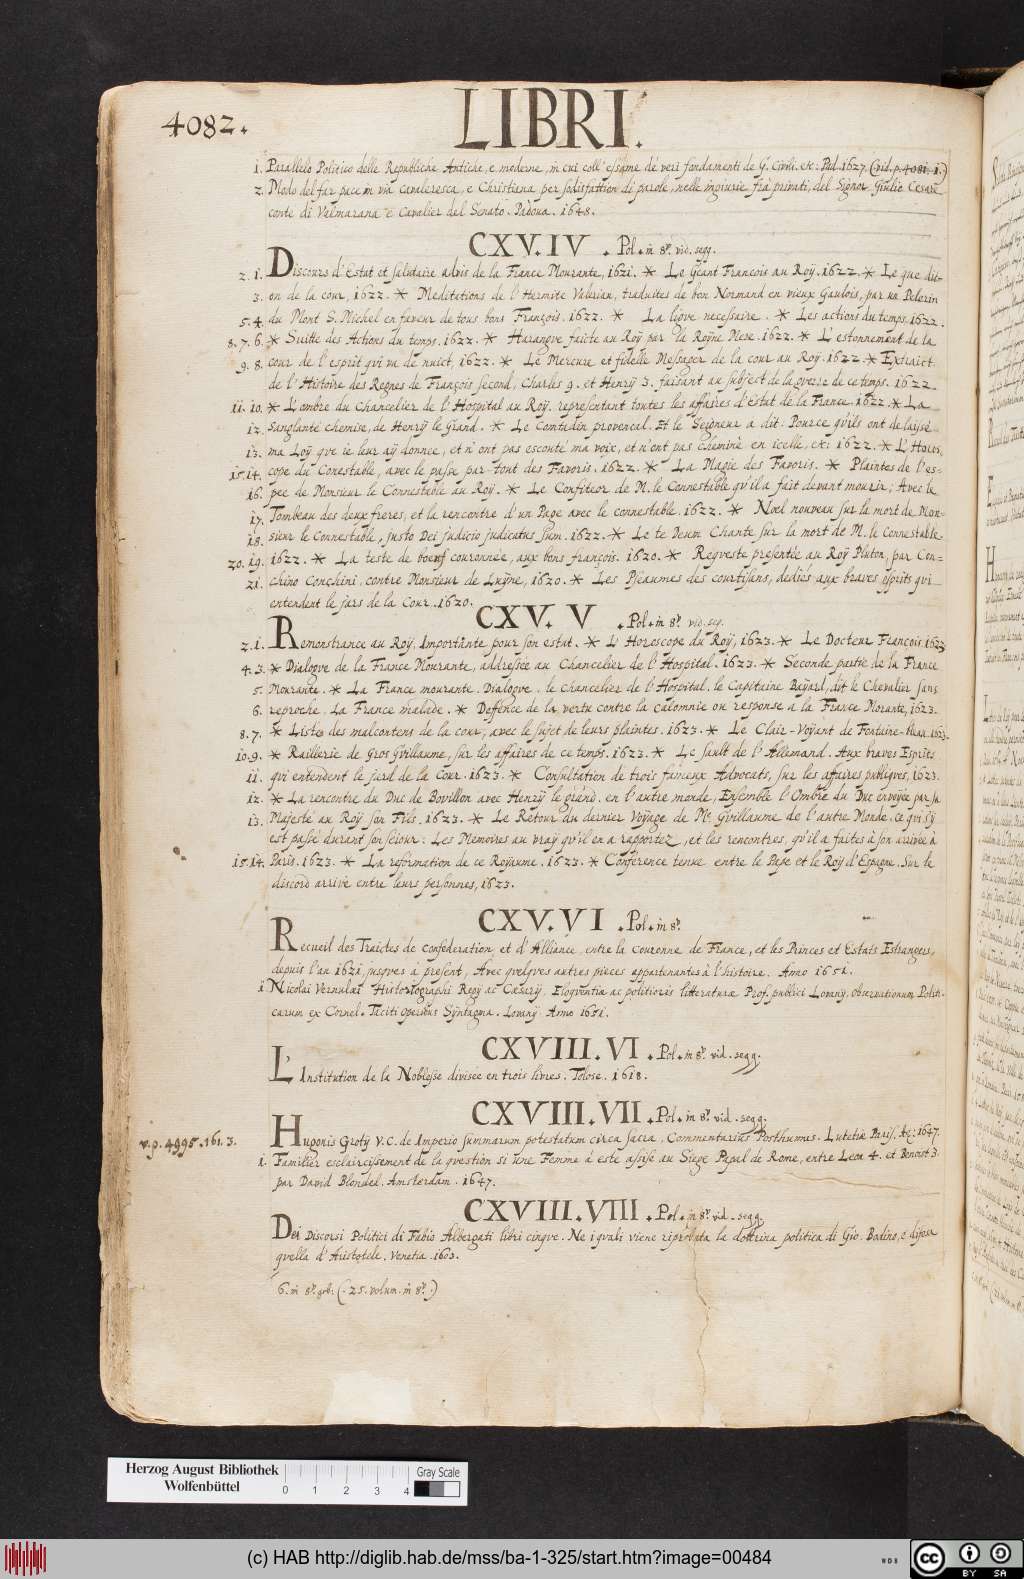 4082.
LIBRI.
1. Parallelo Politico delle Republiche Antiche, e moderne, in cui coll' essame de veri fondamenti de G. Civili. etc: Pad. 1627. (vid. p. 4081. 1.)
2. Modo del far pace in via cavaleresca, e Christiana per sodisfattion di parole, nelle ingiurie frà privati, del Signor Giulio Cesare
conte di Valmarana e Cavalier del Senato. Padoua. 1648.
CXV.IV . Pol. in 8º. vid. segg.
2. 1. Discours d'Estat et salutaire advis de la France Mourante, 1621. * Le Geant François au Roÿ. 1622. * Le que dit-
3. on de la cour, 1622. * Meditations de l'Hermite Valerian, traduites de bon Normand en vieux Gaulois, par un Pelerin
5. 4. du Mont S. Michel en faveur de tous bons François. 1622. * La ligve necessaire. * Les actions du temps. 1622.
8. 7. 6. * Suitte des Actions du temps. 1622. * Harangve faicte au Roÿ par la Roÿne Mere. 1622. * L'estonnement de la
9. 8. cour de l'esprit qvi va de nuict, 1622. * Le Mercure et fidelle Messager de la cour au Roy. 1622. * Extraict
de l'Histoire des Regnes de François second, Charles 9. et Henrÿ 3. faisant au subject de la gverre de ce temps. 1622.
11. 10. * L'ombre du Chancelier de l'Hospital au Roÿ, representant toutes les affaires d'estat de la France. 1622. * La
12. sanglante chemise, de Henrÿ le Grand. * Le Comtadin provençal. Et le Seigneur a dit: Pource qv'ils ont delaissé
13. ma Loÿ qve ie leur aÿ donnee, et n'ont pas escouté ma voix, et n'ont pas cheminé en icelle, etc: 1622. * L'Horos,
15. 14. cope du Conestable, avec le passe par-tout des Favoris. 1622. * La Magie des Favoris. * Plaintes de l'es-
16. pee de Monsieur le Connestable au Roÿ. * Le Confiteor de M. le Connestable qv'il a fait devant mourir; Avec le
17. Tombeau des deux freres, et la rencontre d'un Page avec le connestable. 1622. * Noel nouveau sur la mort de Mon-
18. sieur le Connestable, justo Dei judicio judicatus sum. 1622. * Le te Deum Chante sur la mort de M. le Connestable
20. 19. 1622. * La teste de boeuf couronnée, aux bons françois. 1620. * Reqveste presentée au Roÿ Pluton, par Con-
21. chino Conchini, contre Monsieur de Luÿne, 1620. * Les Pseaumes des courtisans, dediés aux braves esprits qvi
entendent le jars de la Cour. 1620.
CXV. V . Pol. in 8º. vid. seg.
2. 1. Remonstrance au Roÿ, Importante pour son estat. * L'Horoscope du Roÿ, 1623. * Le Docteur François. 1623
4. 3. * Dialogve de la France Mourante, addressée au Chancelier de l'Hospital. 1623. * Seconde partie de la France
5. Mourante. * La France mourante. Dialogve. le chancelier de l'Hospital. le Capitaine Bayard, dit le Chevalier sans
6. reproche. La France malade. * Deffence de la vertu contre la calomnie ou response a la France Morante, 1623.
8. 7. * Listes des malcontens de la cour, avec le sujet de leurs plaintes. 1623. * Le Clair-Voyant de Fontaine-bleau. 1623.
10. 9. * Raillerie de Gros Gvillaume, sur les affaires de ce temps. 1623. * Le sault de l'Allemand. Aux braves Esprits
11. qvi entendent le jerd de la Cour. 1623. * Consultation de trois fameux Advocats, sur les affaires publiqves. 1623.
12. * La rencontre du Duc de Bovillon avec Henrÿ le grand. en l'autre monde, Ensemble l'Ombre du Duc envoyée par sa
13. Majesté au Roÿ son Fils. 1623. * Le Retour du dernier Voyage de Mr. Gvillaume de l'autre Monde. ce qvi s'ÿ
est passé durant son sejour: Les Memoires au vray qv'il en a rapportez, et les rencontres, qv'il a faites à son arrivée à
15. 14. Paris. 1623. * La reformation de ce Royaume. 1623. * Conference tenue entre le Pape et le Roÿ d'Espagne. Sur le
discord arrivé entre leurs personnes, 1623.
CXV. VI . Pol. in 8º.
Recueil des Traictés de confederation, et d'Alliance, entre la Couronne de France, et les Princes et Estats Estrangers,
depuis l'an 1621. jusqves à present, Avec qvelqves autres pieces appartenantes à l'histoire. Anno 1651.
1. Nicolai Vernulaei Historiographi Regÿ ac Caesarÿ. Eloqventiae ac politioris litteraturae Prof. publici Lovanÿ, Observationum Politi-
carum ex Cornel. Taciti operibus Sÿntagma. Lovanÿ Anno 1651.
CXVIII. VI . Pol. in 8º. vid. segg.
L'Institution de la Noblesse divisée en trois livres. Tolose. 1618.
CXVIII. VII . Pol. in 8º. vid. segg.
v. p. 4995. 161. 3. Hugonis Grotÿ V. C. de Imperio summarum potestatum circa sacra, Commentarius Posthumus. Lutetiae Paris. Aº: 1647.
1. Familier esclaircissement de la qvestion si une Femme à este assise au Siege Papal de Rome, entre Leon 4. et Benoist 3.
par David Blondel. Amsterdam. 1647.
CXVIII. VIII . Pol. in 8º. vid. segg.
Dei Discorsi Politici di Fabio Albergati libri cinqve. Ne i qvali viene riprovata la dottrina politica di Gio. Bodino, e difesa
qvella d'Aristotele. Venetia. 1603.
6. in 8º. grß. (. 25. volum. in 8º.)
Herzog August Bibliothek
Wolfenbüttel
0 1 2 3 4
Gray Scale
(c) HAB http://diglib.hab.de/mss/ba-1-325/start.htm?image=00484
WDB
cc BY SA